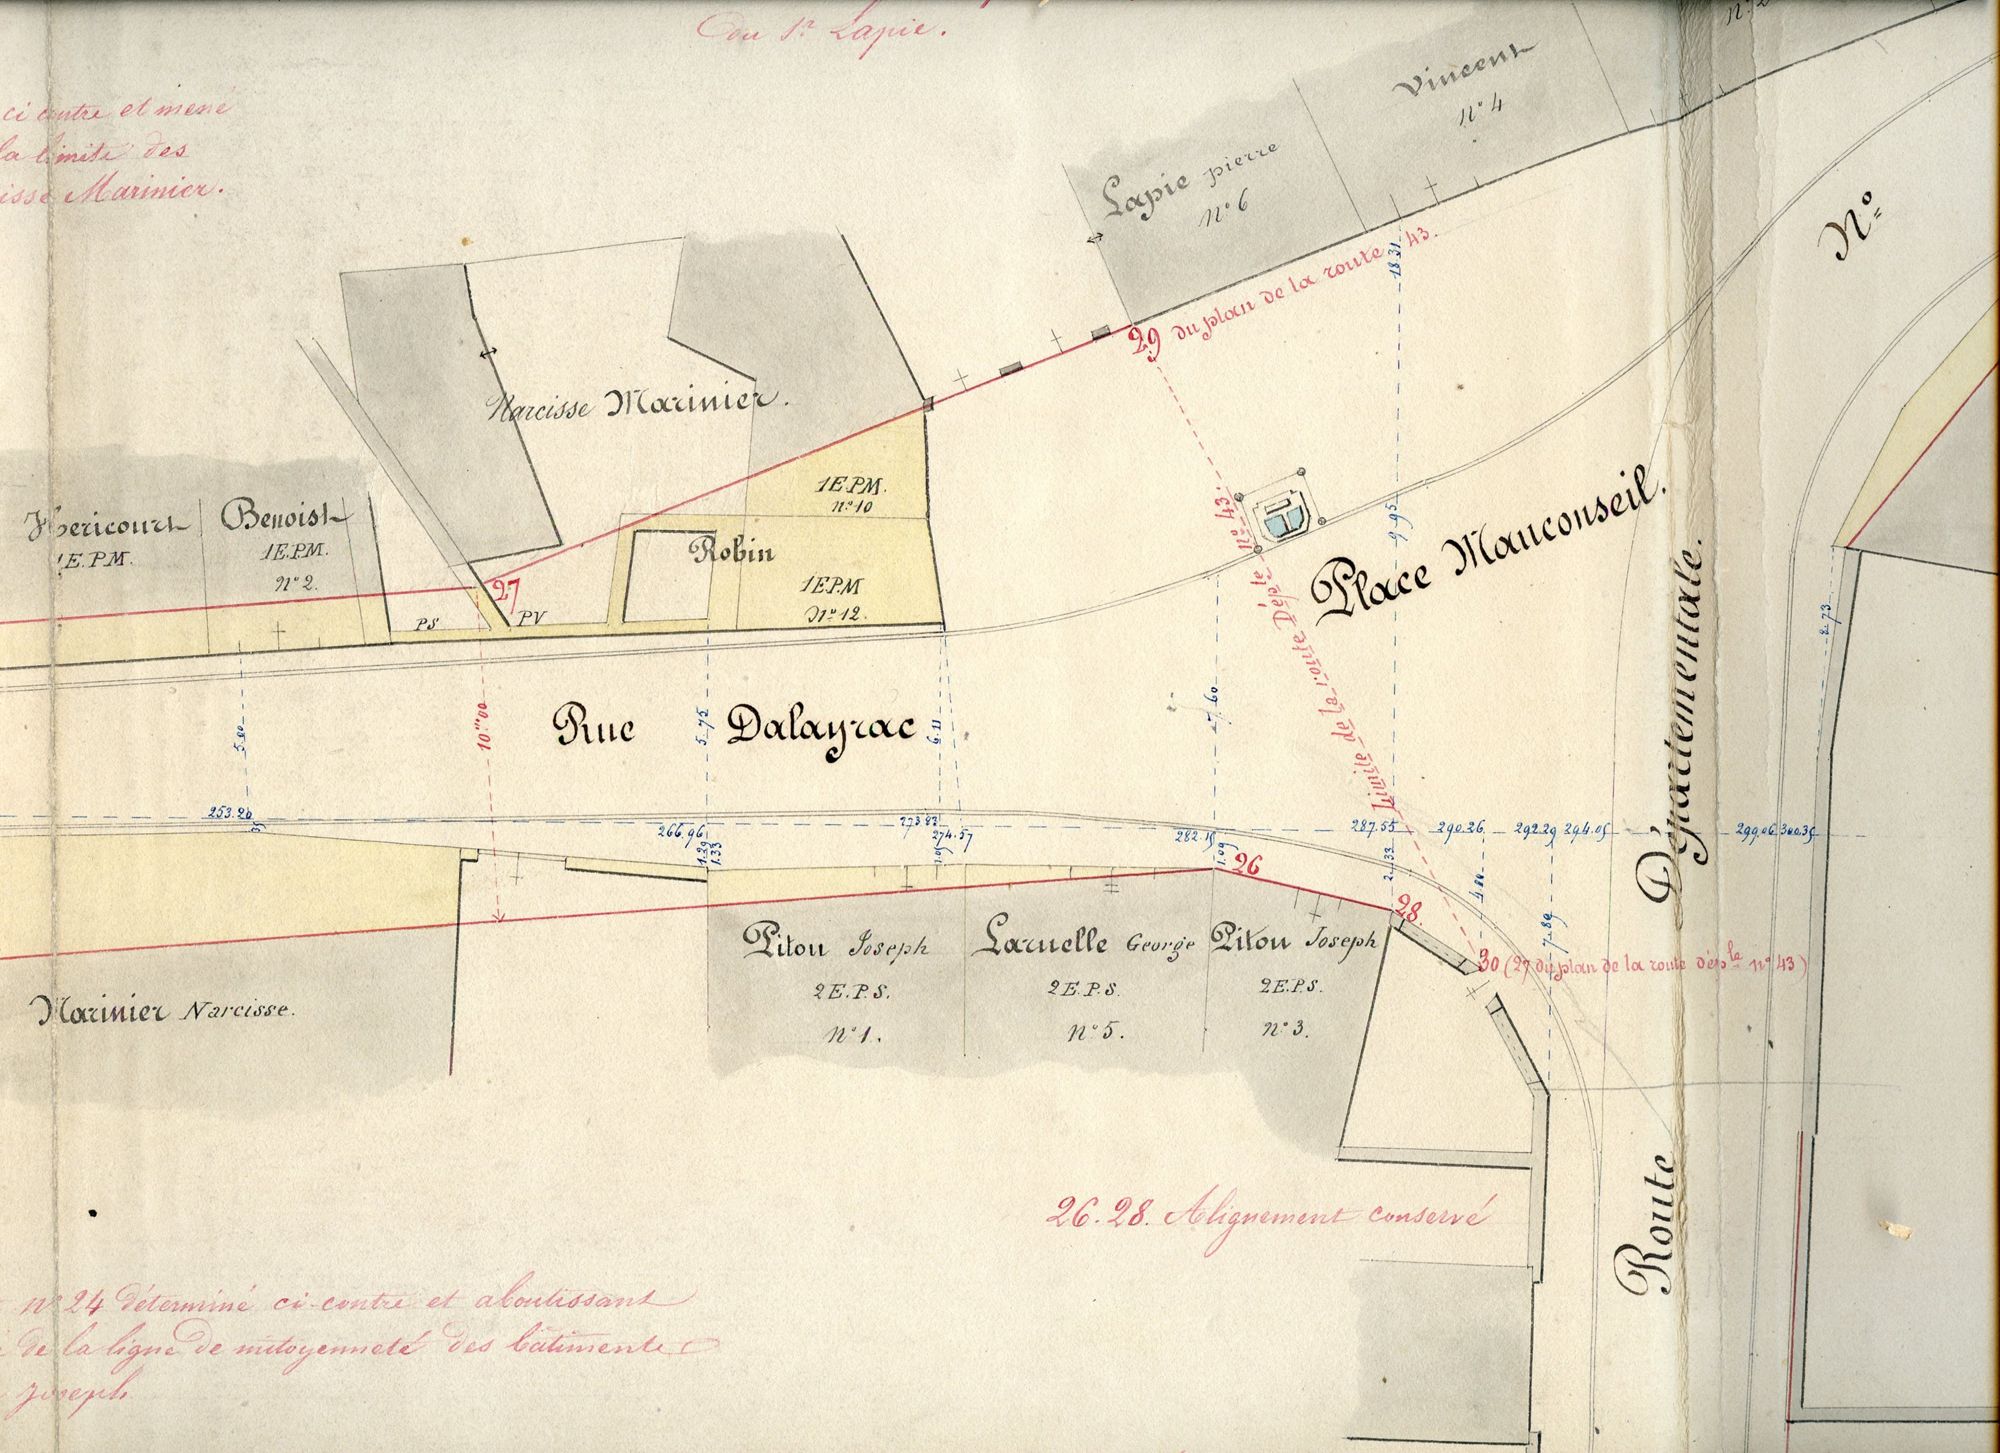 du Sr. Lapie.
ci contre et mené
la limite des
isse Marinier.
Vincent
n° 4
Lapie pierre
n° 6
N°
29 du plan de la route 43.
18.31
Narcisse Marinier.
1E.P.M.
n° 10
Robin
1E.P.M
N° 12.
Hericourt
1E.P.M.
Benoist
1E.P.M.
n° 2.
27
PS
PV
Limite de la route Dép.le n° 43.
9.95
Place Mauconseil.
Route Départementale.
8.73
Rue Dalayrac
5.00
10.m00
5.75
6.11
7.60
253.20
266.96
273.83
274.57
282.15
287.55
290.26
292.29
294.05
299.06
300.35
1.29
1.33
1.05
1.09
2.33
4.80
7.89
26
28
30 (27 du plan de la route dép.le n° 43)
Pitou Joseph
2E.P.S.
n° 1.
Laruelle George
2E.P.S.
n° 5.
Pitou Joseph
2E.P.S.
n° 3.
Marinier Narcisse.
26.28. Alignement conservé
n° 24 déterminé ci-contre et aboutissant
de la ligne de mitoyenneté des bâtiments
Joseph